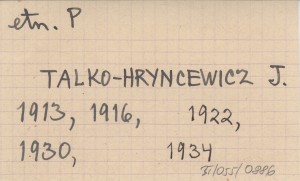 etn. P
TALKO-HRYNCEWICZ J.
1913, 1916, 1922,
1930, 1934